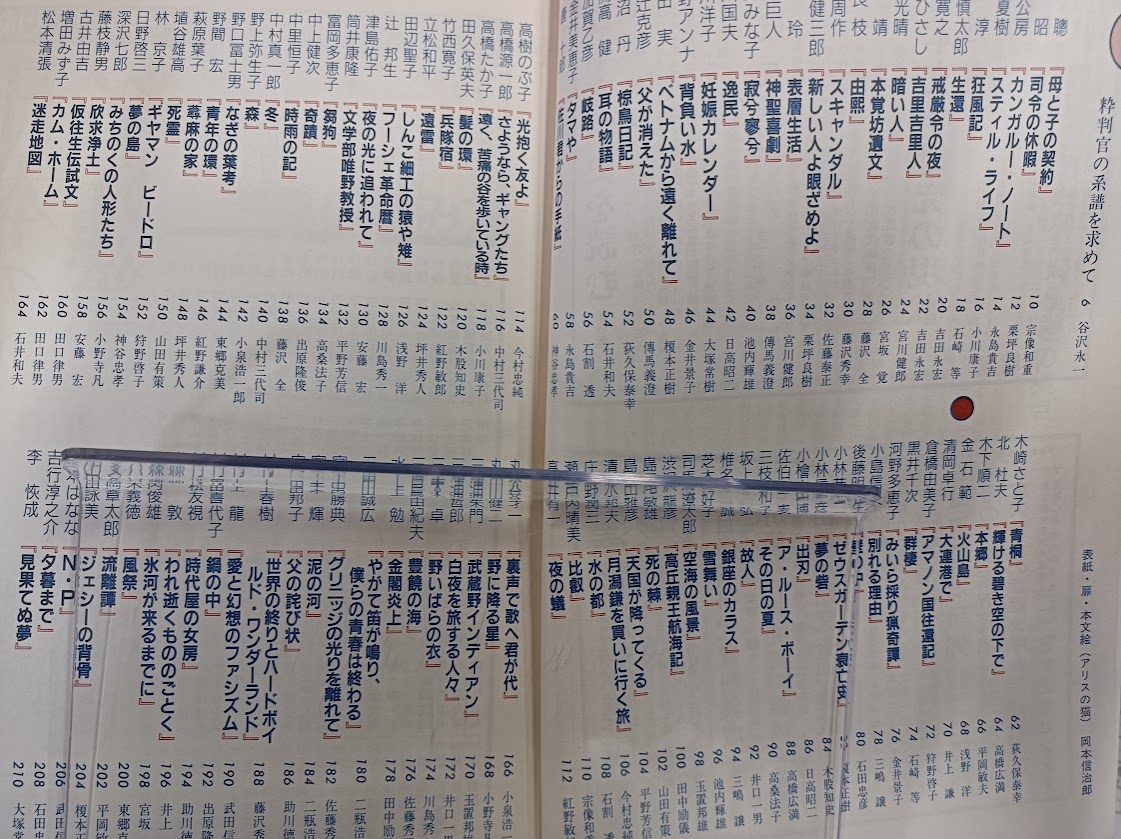 粋判官の系譜を求めて 6 谷沢永一
聰 『母と子の契約』 10 宗像和重
昭 『司令の休暇』 12 栗坪良樹
公房 『カンガルー・ノート』 14 永島貴吉
夏樹 『スティル・ライフ』 16
淳 『狂風記』 18 石崎 等
慎太郎 『生還』 20 吉田永宏
寛之 『戒厳令の夜』 22 吉田永宏
ひさし 『吉里吉里人』 24 宮川健郎
光晴 『暗い人』 26 宮坂 覺
『本覚坊遺文』 28 藤沢 全
良枝 『由熙』 30 藤沢秀幸
周作 『スキャンダル』 32 佐藤泰正
健三郎 『新しい人よ眼ざめよ』 34 栗坪良樹
玲 『表層生活』 36 宮川健郎
巨人 『神聖喜劇』 38 傳馬義澄
みな子 『寂兮寥兮』 40 池内輝雄
国夫 『逸民』 42 日高昭二
洋子 『妊娠カレンダー』 44 大塚常樹
アンナ 『背負い水』 46 金井景子
実 『ベトナムから遠く離れて』 48 榎本正樹
克彦 『父が消えた』 50 傳馬義澄
沼 丹 『椋鳥日記』 52 荻久保泰幸
高 健 『耳の物語』 54 石井和夫
加賀乙彦 『岐路』 56 石割 透
金井美恵子 『タマや』 58 永島貴吉
十郎 『佐川君からの手紙』 60 神谷忠孝
木崎さと子 『青桐』 62 荻久保泰幸
北 杜夫 『輝ける碧き空の下で』 64 高橋広満
木下順二 『本郷』 66 平岡敏夫
金 石範 『火山島』 68 浅野 洋
清岡卓行 『大連港で』 70 井上 謙
倉橋由美子 『アマノン国往還記』 72 狩野啓子
黒井千次 『群棲』 74 石崎 等
河野多恵子 『みいら採り猟奇譚』 76 金井景子
小島信夫 『別れる理由』 78 三嶋 譲
後藤明生 『壁の中』 80 石田忠彦
小林 『ゼウスガーデン衰亡史』 榎本正樹
小林 『夢の砦』 84 木股知史
小檜山博 『出刃』 86 日高昭二
佐伯一 『ア・ルース・ボーイ』 88 高橋広満
三枝和子 『その日の夏』 90 高桑法子
坂上 『故人』 92 井口一男
椎名 誠 『銀座のカラス』 94 三嶋 譲
芝木好子 『雪舞い』 96 池内輝雄
司馬遼太郎 『空海の風景』 98 玉置邦雄
龍彦 『高丘親王航海記』 100 田中励儀
島尾敏雄 『死の棘』 102 山田有策
島田雅彦 『天国が降ってくる』 104 平野芳信
清水邦夫 『月潟鎌を買いに行く旅』 106 今村忠純
庄野潤三 『水の都』 108 石割 透
瀬戸内晴美 『比叡』 110 宗像和重
高井有一 『夜の蟻』 112 紅野敏
表紙・扉・本文絵(アリスの猫) 岡本信治郎
高樹のぶ子 『光抱く友よ』 114 今村忠純
高橋源一郎 『さようなら、ギャングたち』 116 中村三代司
高橋たか子 『遠く、苦痛の谷を歩いている時』 118 小川康子
田久保英夫 『髪の環』 120 木股知史
竹西寛子 『兵隊宿』 122 紅野敏郎
立松和平 『遠雷』 124 坪井秀人
田辺聖子 『しんこ細工の猿や雉』 126 浅野 洋
辻 邦生 『フーシェ革命暦』 128 川島秀一
津島佑子 『夜の光に追われて』 130 安藤 宏
筒井康隆 『文学部唯野教授』 132 平野芳信
富岡多恵子 『芻狗』 134 高桑法子
中上健次 『奇蹟』 136 出原隆俊
中里恒子 『時雨の記』 138 藤沢 全
中村真一郎 『冬』 140 中村三代司
野上弥生子 『森』 142 小泉浩一郎
野口冨士男 『なぎの葉考』 144 東郷克美
野間 宏 『青年の環』 146 紅野謙介
萩原葉子 『蕁麻の家』 148 坪井秀人
埴谷雄高 『死霊』 150 山田有策
林 京子 『ギヤマン ビードロ』 152 狩野啓子
日野啓三 『夢の島』 154 神谷忠孝
深沢七郎 『みちのくの人形たち』 156 小野寺凡
藤枝静男 『欣求浄土』 158 安藤 宏
古井由吉 『仮往生伝試文』 160 田口律男
増田みず子 『カム・ホーム』 162 田口律男
松本清張 『迷走地図』 164 石井和夫
丸谷才一 『裏声で歌へ君が代』 166 小泉浩一
丸山健二 『野に降る星』 168 小野寺
三浦朱門 『武蔵野インディアン』 170 玉置邦
三浦哲郎 『白夜を旅する人々』 172 井口一
三木 卓 『野いばらの衣』 174 川島秀
三島由紀夫 『豊饒の海』 176
水上 勉 『金閣炎上』 178 田中励
三田誠広 『やがて笛が鳴り、
僕らの青春は終わる』 180 二瓶浩
宮内勝典 『グリニッジの光りを離れて』 182 佐藤
宮本 輝 『泥の河』 184 二瓶浩
向田邦子 『父の詫び状』 186 助川徳
村上春樹 『世界の終りとハードボイ
ルド・ワンダーランド』 188 藤沢秀
村上 龍 『愛と幻想のファシズム』 190 武田信
村田喜代子 『鍋の中』 192 出原隆
村松友視 『時代屋の女房』 194 助川徳
森 敦 『われ逝くもののごとく』 196 井上
森内俊雄 『氷河が来るまでに』 198 宮坂
八木義徳 『風祭』 200 東郷克
安岡章太郎 『流離譚』 202 平岡敏
山田詠美 『ジェシーの背骨』 204 榎本正
吉本ばなな 『N・P』 206 武田信
吉行淳之介 『夕暮まで』 208 石田忠
李 恢成 『見果てぬ夢』 210 大塚常